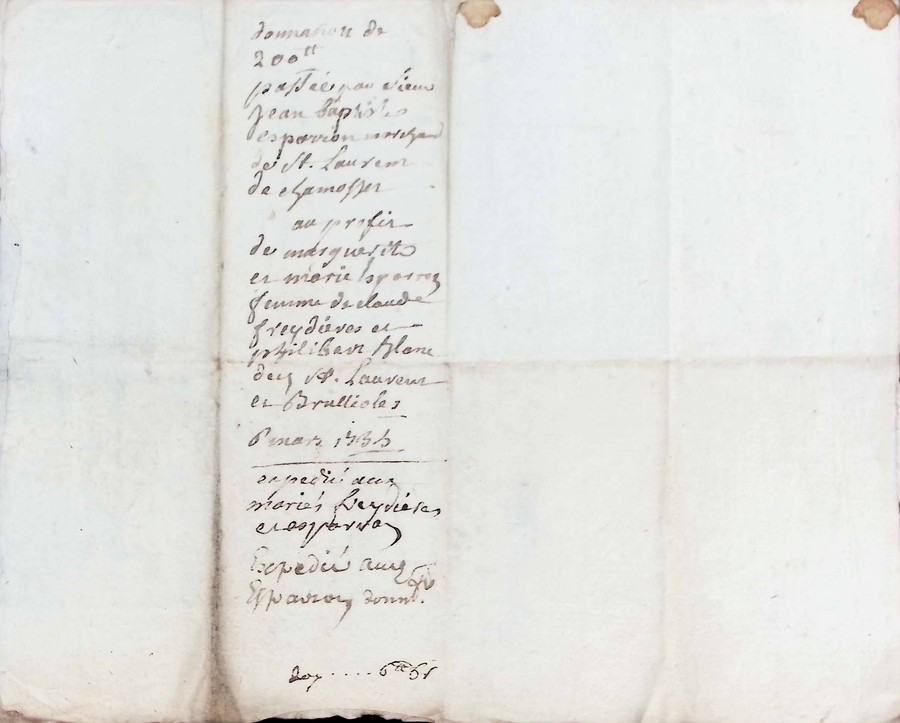 donnation de
200tt
passée par sieur
Jean baptiste
esparron marchand
de St. Laurent
de chamosset
au profit
de marguerite
et marie esparron
femme de claude
freydières et
philibert Blanc
dud St. Laurent
et Brullioles
6 mars
expedié aux
mariés freydières
et esparron
Expedié aux
Esparron donnt.